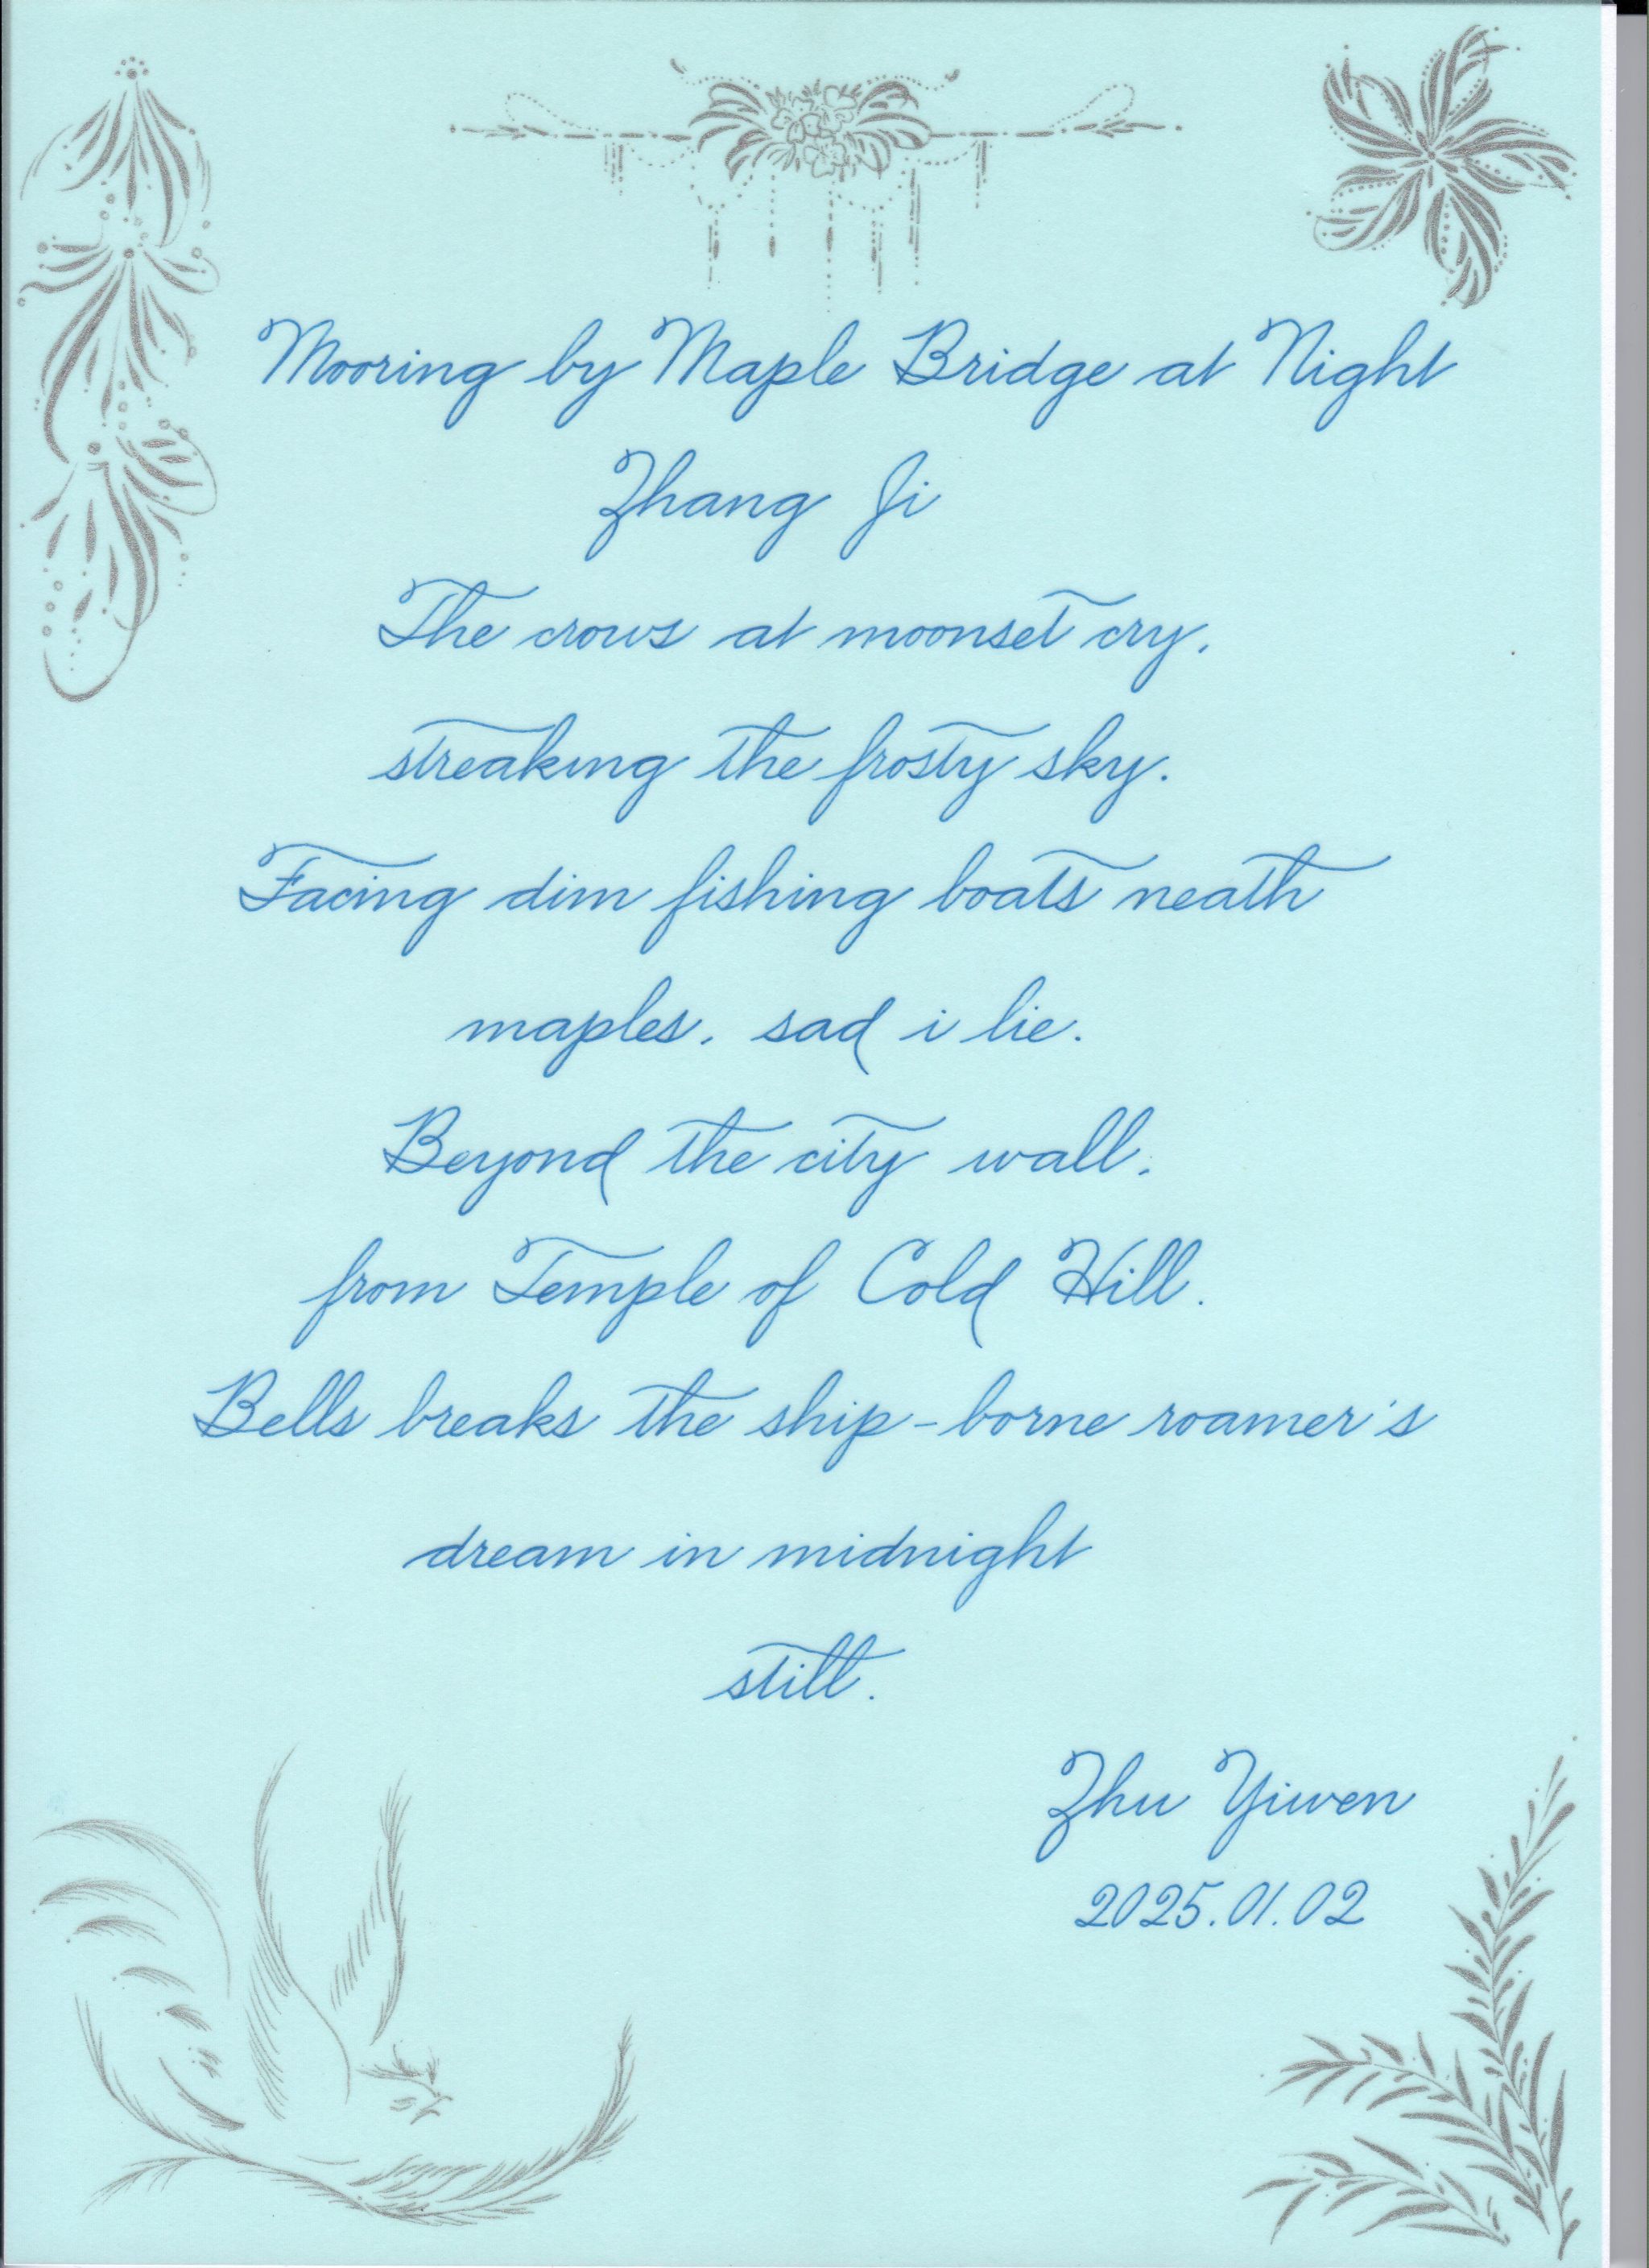 Mooring by Maple Bridge at Night
Zhang Ji
The crows at moonset cry,
streaking the frosty sky.
Facing dim fishing boats neath
maples, sad i lie.
Beyond the city wall,
from Temple of Cold Hill.
Bells breaks the ship-borne roamer's
dream in midnight
still.
Zhu Yiwen
2025.01.02